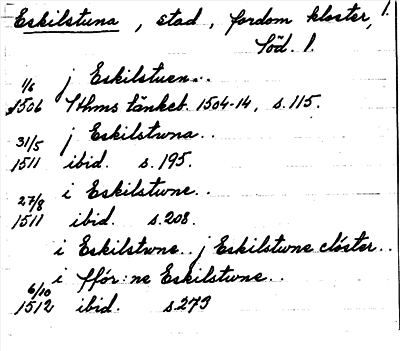 Eskilstuna, stad, fordom kloster, 1.
Söd. 1.
1/6 j Eskilstuen..
1506 Sthms tänkeb. 1504-14, s. 115.
31/5 j Eskilstwna..
1511 ibid. s. 195.
27/8 i Eskilstwne..
1511 ibid. s. 208.
i Eskilstwne.. j Eskilstwne clöster..
6/10 i ffór:ne Eskilstwne..
1512 ibid. s 273